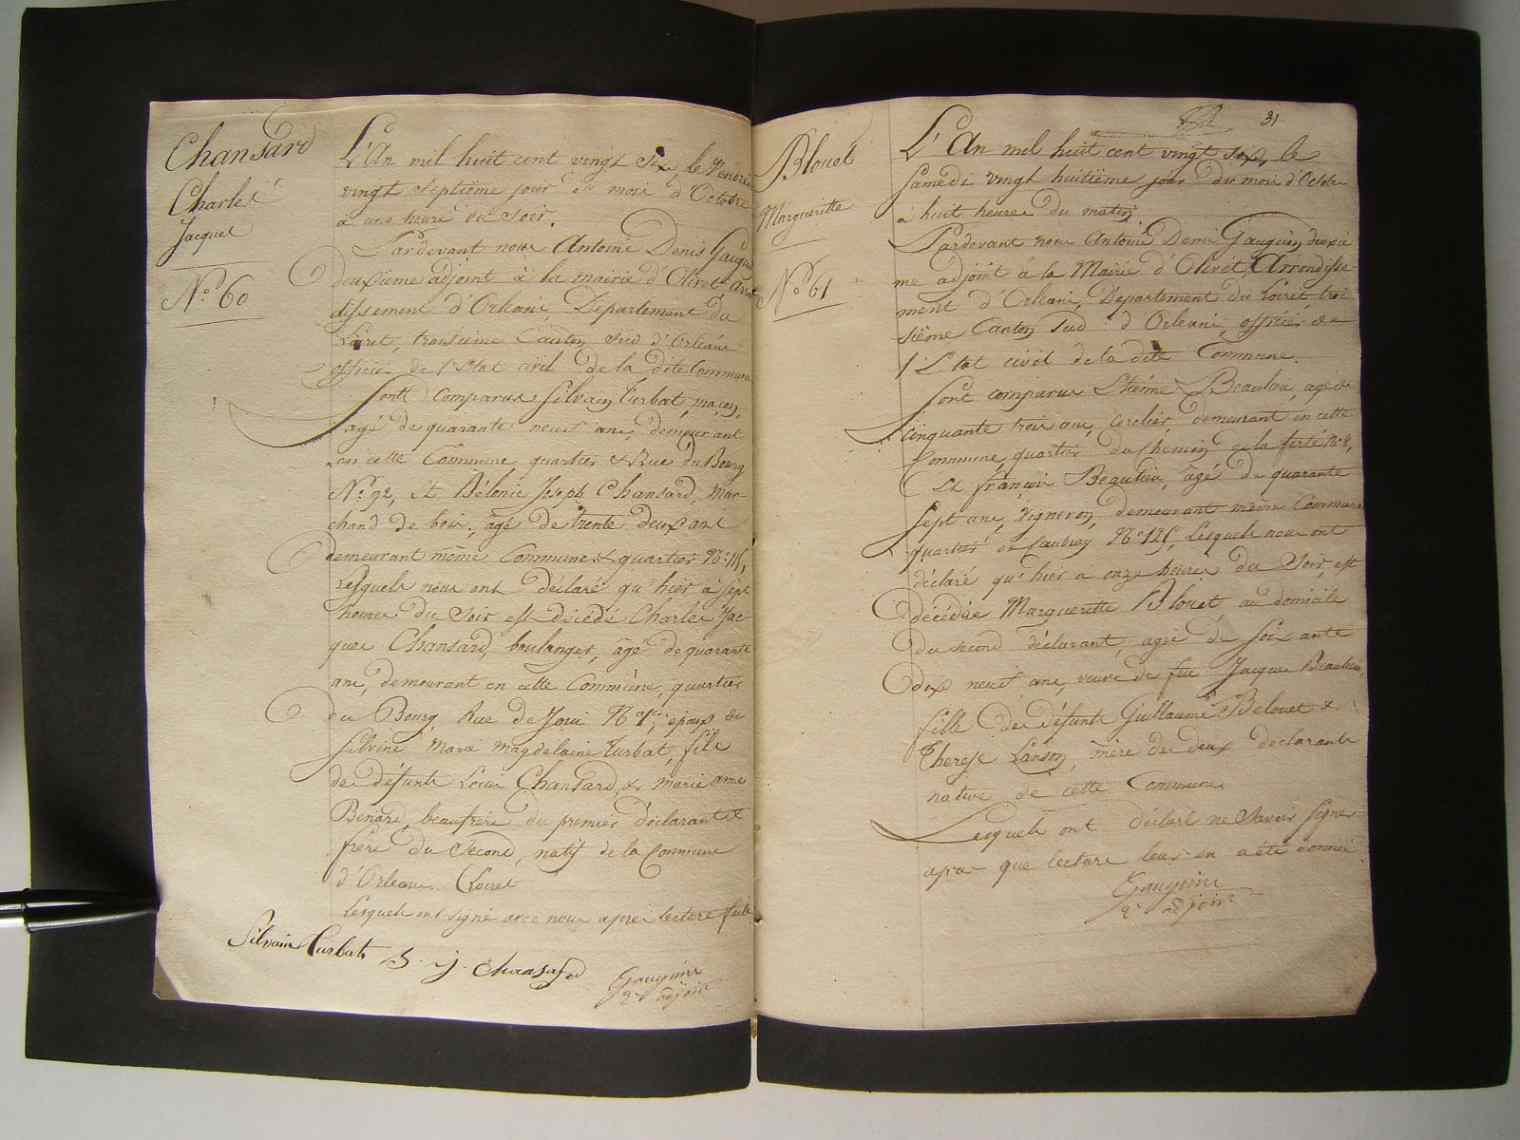 Chansard
Charles
Jacques
N.° 60
L'An mil huit cent vingt Six, le Vendre
vingt Septième jour du mois d'Octobre
à une heure du Soir.
Pardevant nous Antoine Denis Gauguin
deuxieme adjoint à la mairie d'Olivet arron
dissement d'Orleans, Département du
Loiret, troisieme Canton Sud d'Orleans
officier de l'Etat civil de la dite Commune
Sont Comparus Silvain Turbat, maçon,
agé de quarante neuf ans, demeurant
en cette Commune, quartier & Rue du Bourg
N.° 92, et Joseph Chansard, Mar-
chand de bois, âgé de trente deux ans
demeurant même Commune & quartier N.°
lesquels nous ont déclaré qu'hier à Sept
heures du Soir est décédé Charles Jac
ques Chansard, boulanger, âgé de quarante
ans, demeurant en cette Commune, quartier
du Bourg Rue de N.° époux de
Silvine Marie Magdelaine Turbat, fils
de défunts Louis Chansard, & Marie anne
Benard, beaufrère du premier déclarant &
frère du Second, natif de la Commune
d'Orleans Loiret
Lesquels ont signé avec nous après lecture faite
Silvain Turbat S. j. Chansard
Gauguin
2.e adjoint
31
Blouet
Margueritte
N.° 61
L'An mil huit cent vingt Six, le
Samedi vingt huitième jour du mois d'Octobre
à huit heures du matin.
Pardevant nous Antoine Denis Gauguin, deuxie
me adjoint à la Mairie d'Olivet, Arrondisse
ment d'Orleans, Département du Loiret, troi
sième Canton Sud d'Orleans, officier de
l'Etat civil de la dite Commune.
Sont comparus Etienne Beaulieu, agé de
cinquante trois ans, cerclier, demeurant en cette
Commune, quartier du chemin de la ferté N.° 2,
Et françois Beaulieu, âgé de quarante
Sept ans, Vigneron, demeurant même Commune
quartier de Lesquels nous ont
déclaré qu'hier à onze heures du Soir, est
décédée Margueritte Blouet au domicile
du second déclarant, agée de Soixante
dix neuf ans, veuve de feu Jacques Beaulieu,
fille de défunts Guillaume Belouet &
Therese Lanson, mère des deux déclarants
native de cette Commune
Lesquels ont déclaré ne Savoir Signer
après que lecture leur en a été donnée
Gauguin
2.e adjoint